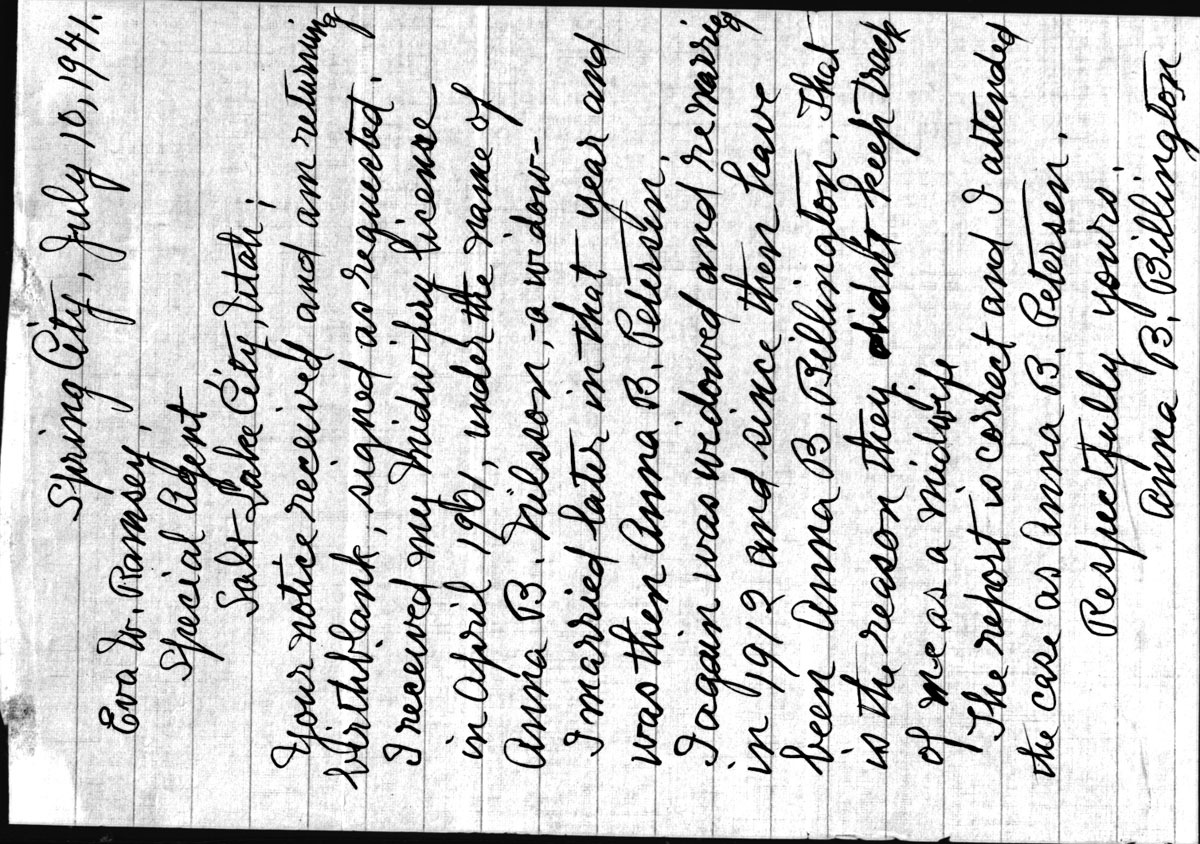 Spring City, July 10, 1941.
Eva W. Ramsey,
Special Agent
Salt Lake City, Utah;
Your notice received and am returning
birthblank, signed as requested.
I received my Midwifery license
in April, 1901, under the name of
Anna B. Nilsson, - a widow -
I married later in that year and
was then Anna B. Petersen.
I again was widowed and remarried
in 1912 and since then have
been Anna B. Billington. That
is the reason they didnt keep track
of me as a midwife
The report is correct and I attended
the case as Anna B. Petersen.
Respectfully yours.
Anna B. Billington